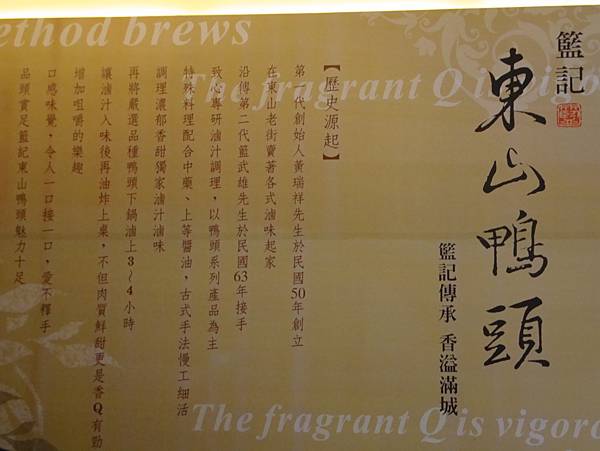 ethod brews
The fragrant Q is vigo
籃記
東山鴨頭
籃記傳承 香溢滿城
【歷史源起】
第一代創始人黃瑞祥先生於民國50年創立
在東山老街賣著各式滷味起家
沿傳第二代籃武雄先生於民國63年接手
致心專研滷汁調理，以鴨頭系列產品為主
特殊料理配合中藥、上等醬油，古式手法慢工細活
調理濃郁香甜獨家滷汁滷味
再將嚴選品種鴨頭下鍋滷上3~4小時
讓滷汁入味後再油炸上桌，不但肉質鮮甜更是香Q有勁
增加咀嚼的樂趣
口感味覺，令人一口接一口，愛不釋手
品頭賞足籃紀東山鴨頭魅力十足
The fragrant Q is vigoro